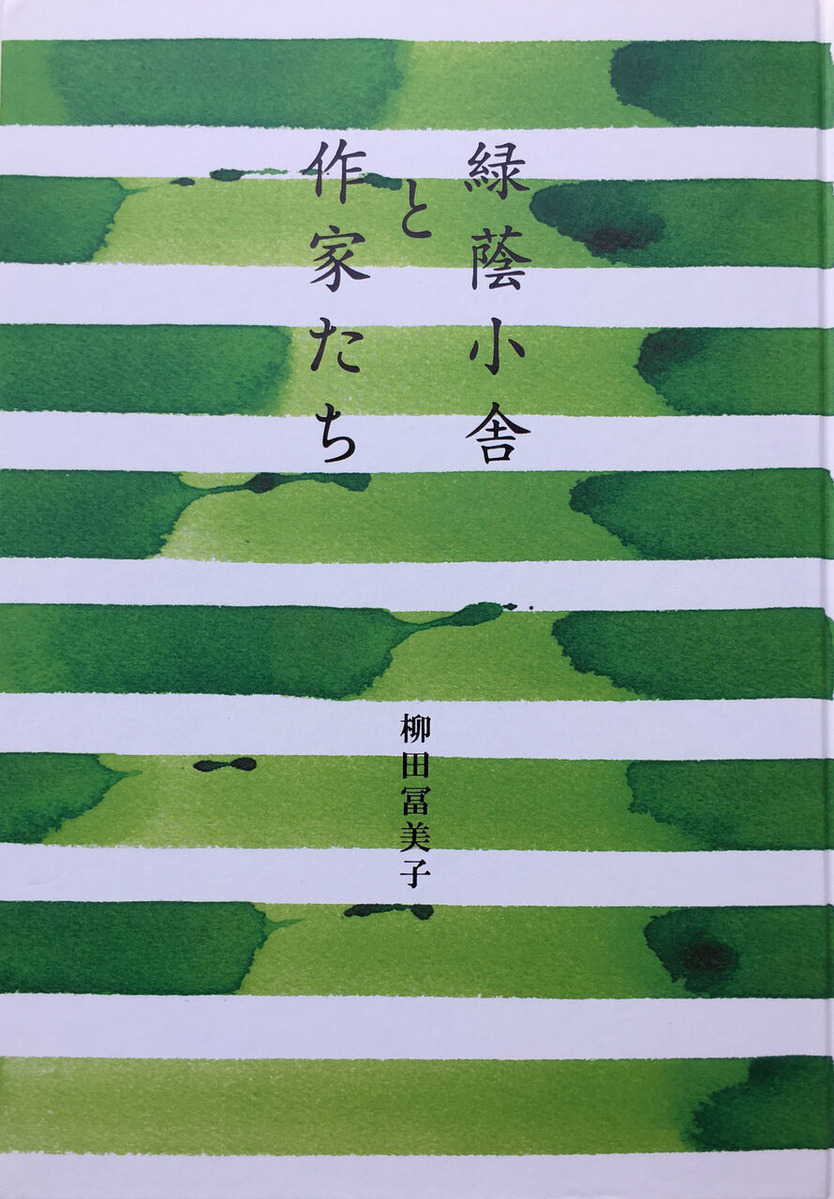 緑蔭小舎
と
作家たち
柳田冨美子